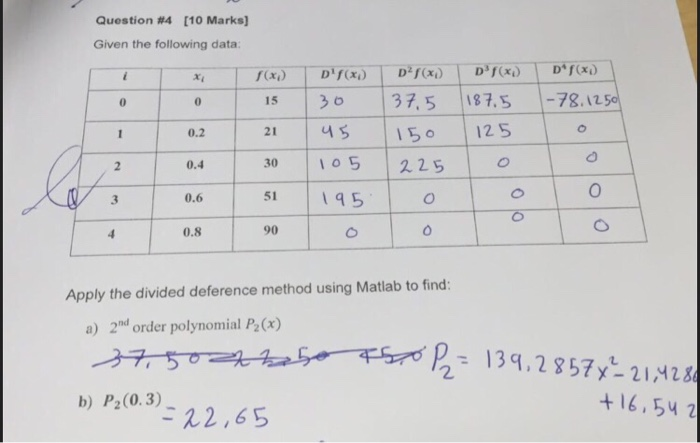 Question #4 [10 Marks]
Given the following data:
i xᵢ f(xᵢ) D¹f(xᵢ) D²f(xᵢ) D³f(xᵢ) D⁴f(xᵢ)
0 0 15 30 37.5 187.5 -78.1250
1 0.2 21 45 150 125 0
2 0.4 30 105 225 0 0
3 0.6 51 195 0 0 0
4 0.8 90 0 0 0 0
Apply the divided deference method using Matlab to find:
a) 2nd order polynomial P₂(x)
P₂ = 139,2857x² - 21,428
+ 16,542
b) P₂(0.3) = 22,65